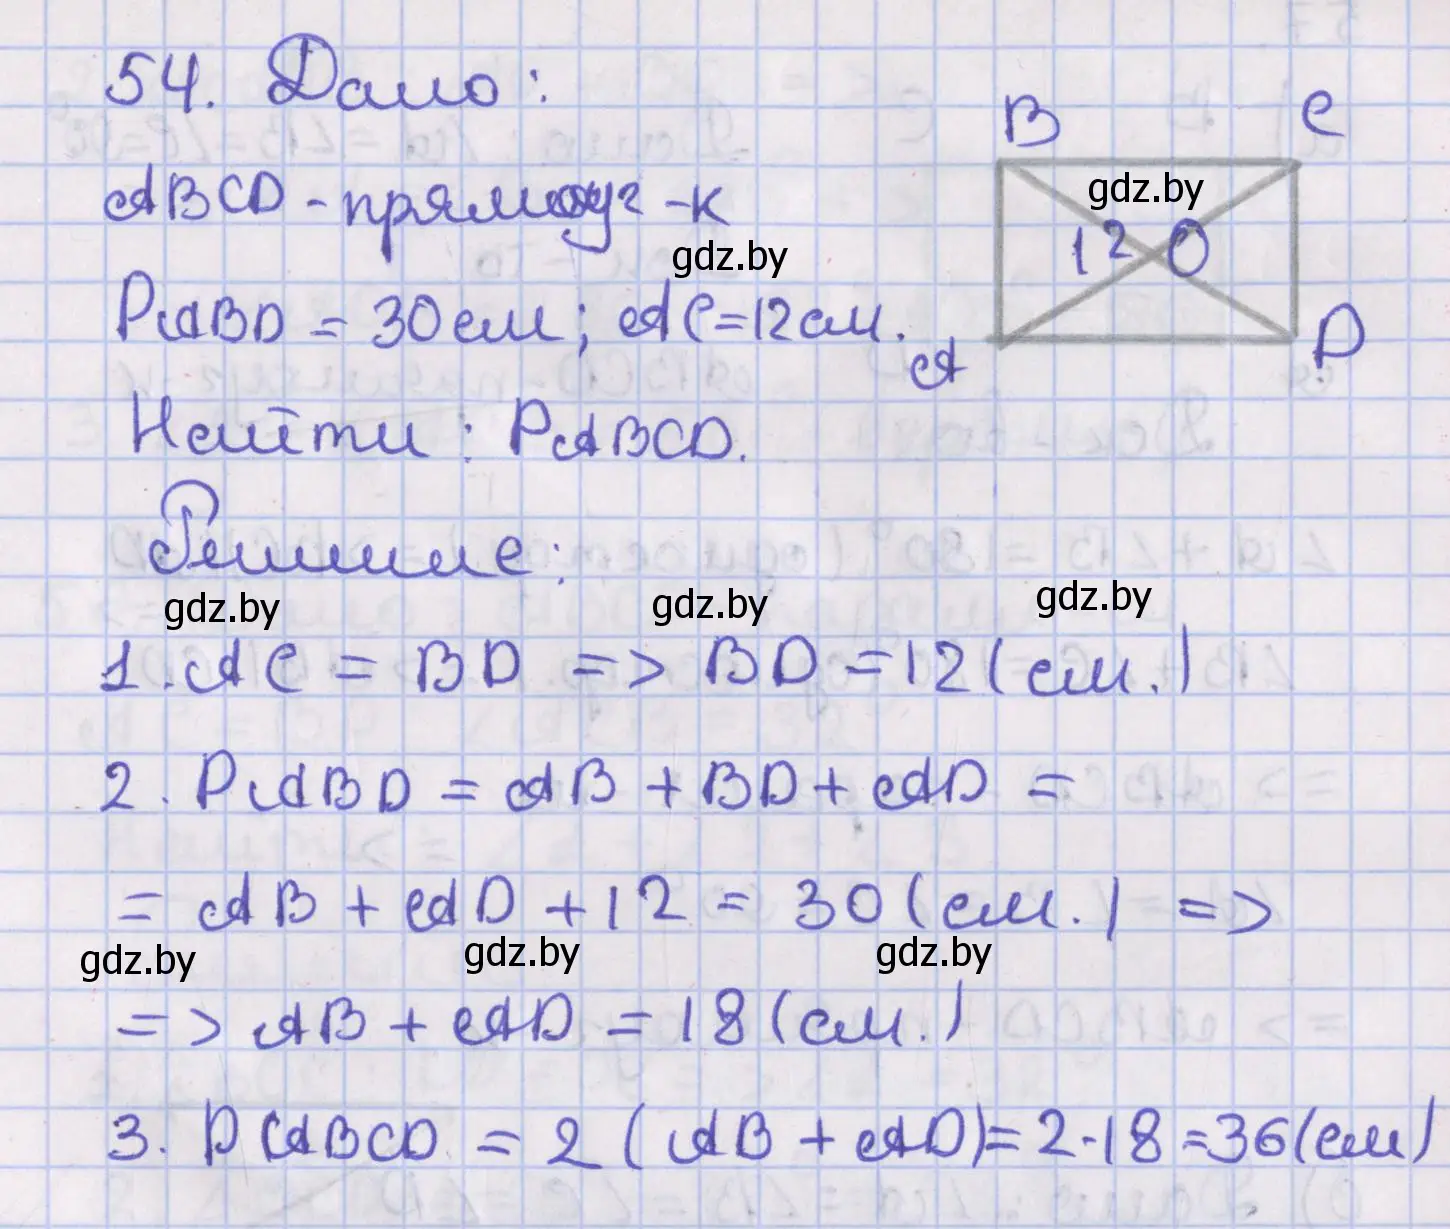 54. Дано:
B C
ABCD - прямоуг-к
gdz.by
12 O
gdz.by
PABD = 30см; AC=12см.
A D
Найти: PABCD.
Решение:
gdz.by gdz.by gdz.by
1. AC = BD => BD = 12(см.)
2. PABD = AB + BD + AD =
= AB + AD + 12 = 30(см.) =>
gdz.by gdz.by gdz.by
=> AB + AD = 18(см.)
3. PABCD = 2(AB + AD)= 2·18=36(см)